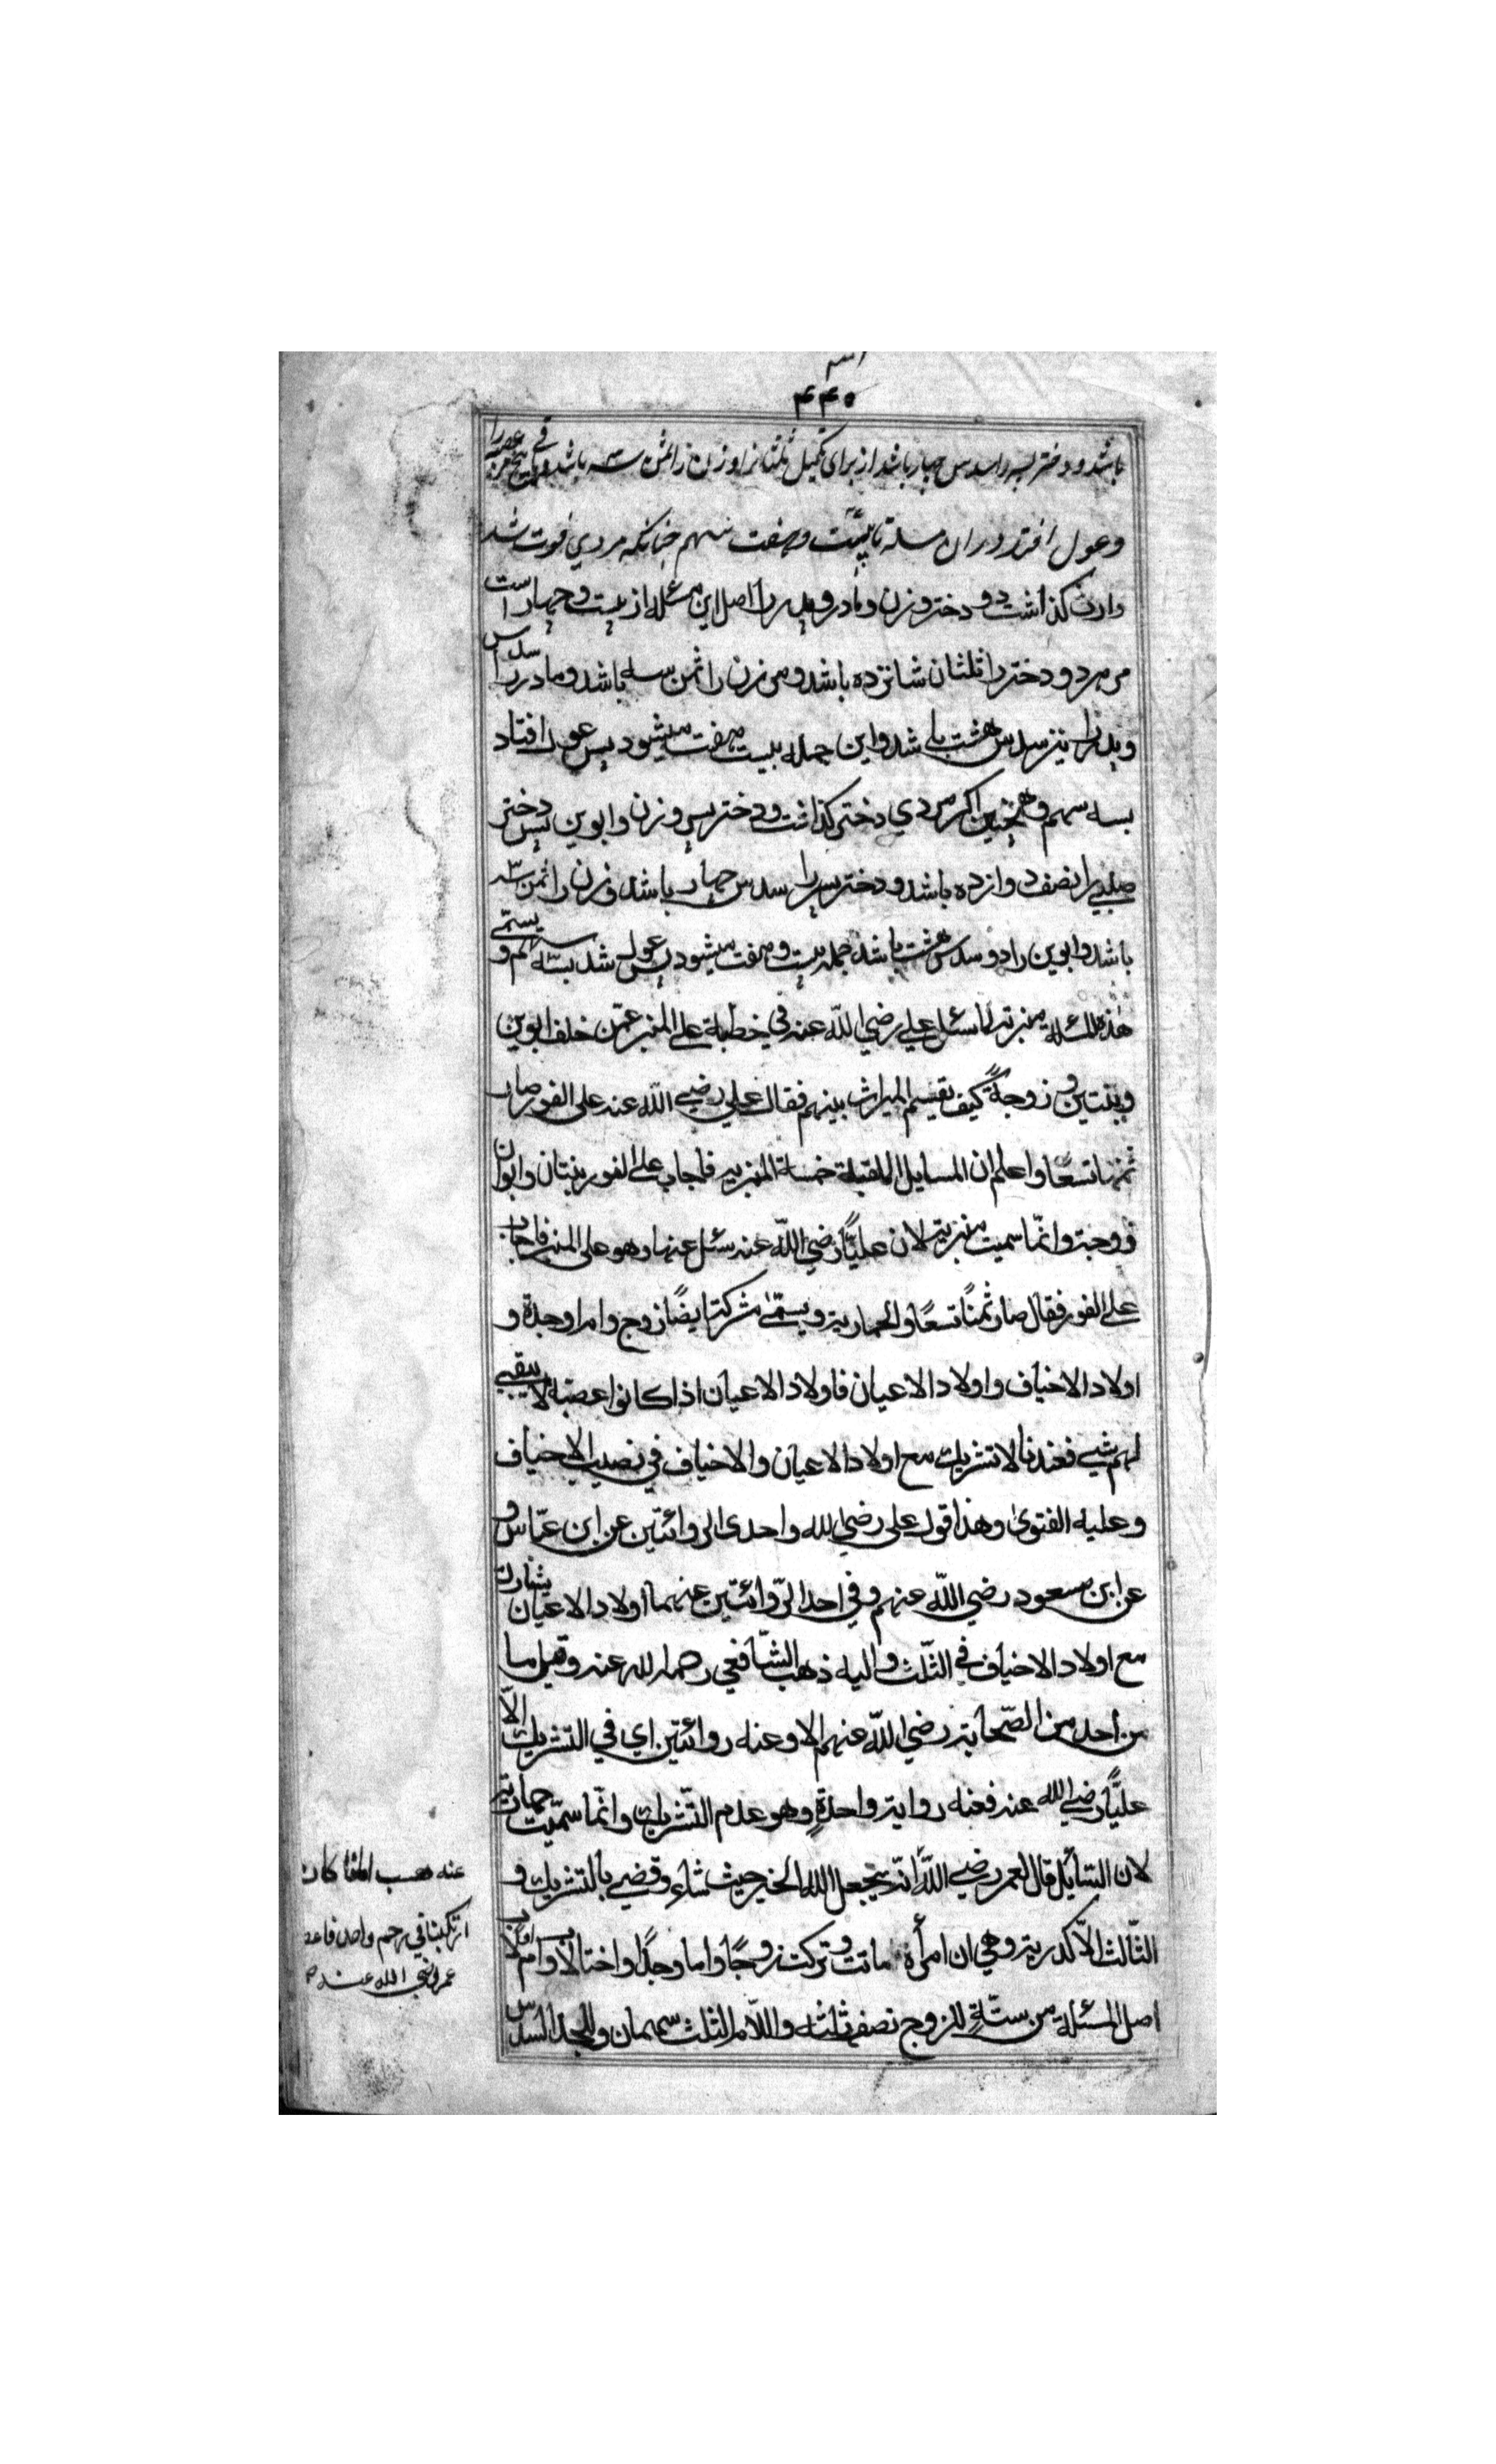 ۴۴۵
باشد و دختر پسر را سدس چهار باشد از برای تکمیل ثلثان را و زن را ثمن سه باشد و پنج
وعول افتد در ان مسله تا بیست وهفت سهم چنانکه مردی فوت شد
وارث کذاشت دو دختر وزن ومادر وپدر را اصل این مسئله از بیست وچهار است
مر هر دو دختر را ثلثان شانزده باشد ومر زن را ثمن سه باشد ومادر را سدس
وپدر را نیز سدس هشت باشد واین جمله بیست هفت میشود پس عول افتاد
بسه سهم وهمچنین اکر مردی دختر کذاشت ودختر پس وزن وابوین پس دختر
صلبی را نصف دوازده باشد ودختر پسر را سدس چهار باشد وزن را ثمن سه
باشد وابوین را دو سدس هشت باشد جمله بیست وهفت میشود پس عول شد بسه سهم ویستمی
هذه المسئله منبریه لما سئل علی رضی الله عنه فی خطبة علی المنبر عمّن خلف ابوین
وبنتین و زوجةً کیف یقسم المیراث بینهم فقال علی رضی الله عنه علی الفور صار
ثمنها تسعًا واعلم ان المسایل الملقبة خمسة المنبریه فاجاب علی الفور بنتان وابوان
وزوجة وانّما سمیت منبریة لان علیًّا رضی الله عنه سئل عنها وهو علی المنبر فاجاب
علی الفور فقال صار ثمنًا تسعًا والحماریة ویسمّی مشرکة ایضًا زوج وام او جدة و
اولاد الاخیاف واولاد الاعیان فاولاد الاعیان اذا کانوا عصبة لا یبقی
لهم شیی فعندنا لا تشریک مع اولاد الاعیان والاخیاف فی نصیب الاخیاف
وعلیه الفتوی وهذا قول علی رضی الله واحدی الروائتین عن ابن عبّاس و
عن ابن مسعود رضی الله عنهم وفی احد الرّوائتین عنهما اولاد الاعیان یشارک
مع اولاد الاخیاف فی الثّلث والیه ذهب الشّافعی رحمه الله عنه وقیل ما
من أحد من الصّحابة رضی الله عنهم الا وعنه روائتین ای فی التّشریک الّا
علیًّا رضی الله عنه فعنه روایة واحدةٍ وهو عدم التّشریک وانّما سمّیت حماریة
لان السّایٔل قال لعمر رضی اللهُ انّه یجعل الله الخیر حیث شاء وقضی بالتشریک و
الثّالث الاکدریة وهی ان امرأة ماتت وترکت زوجًا واما وجدًا واختا لاب وام او لاب
اصل المسئلة من ستّةٍ للزوج نصف ثلثه وللام الثلث سهمان وللجد السدس
عنه هب ابانا کان
ارتکبنا فی رحم واحد
عمر رضی الله عنه